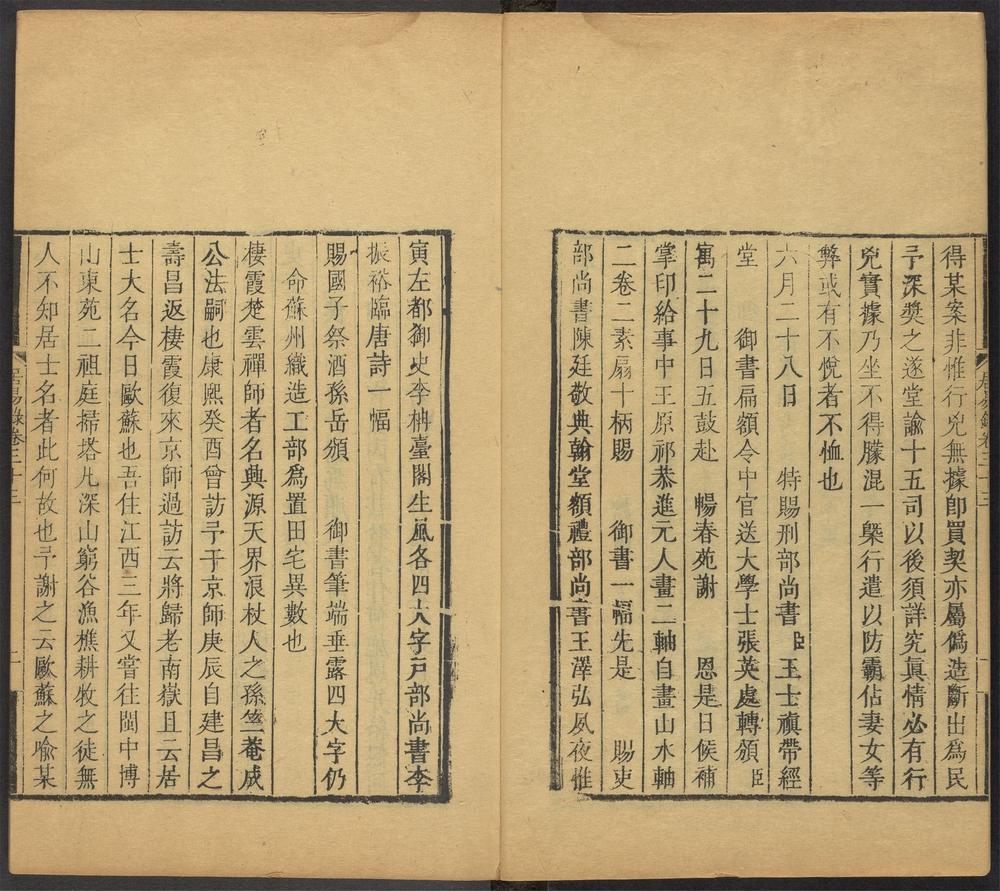 得某案非惟行兇無據卽買契亦屬僞造斷出爲民
予深獎之遂堂諭十五司以後須詳究眞情必有行
兇實據乃坐不得朦混一槩行遣以防霸佔妻女等
弊或有不悅者不恤也
六月二十八日　特賜刑部尚書臣王士禛帶經
堂　御書扁額令中官送大學士張英處轉頒臣
寓二十九日五鼓赴　暢春苑謝　恩是日候補
掌印給事中王原祁恭進元人畫二軸自畫山水軸
二卷二素扇十柄賜　御書一幅先是　賜吏
部尚書陳廷敬典翰堂額禮部尚書王澤弘夙夜惟
居易錄卷三十三
寅左都御史李柟臺閣生風各四大字戸部尚書李
振裕臨唐詩一幅
賜國子祭酒孫岳頒　御書筆端垂露四大字仍
命蘇州織造工部爲置田宅異數也
棲霞楚雲禪師者名典源天界浪杖人之孫竺菴成
公法嗣也康熙癸酉曾訪予于京師庚辰自建昌之
壽昌返棲霞復來京師過訪云將歸老南嶽且云居
士大名今日歐蘇也吾住江西三年又嘗往閩中博
山東苑二祖庭掃塔凡深山窮谷漁樵耕牧之徒無
人不知居士名者此何故也予謝之云歐蘇之喩某
居易錄卷三十三